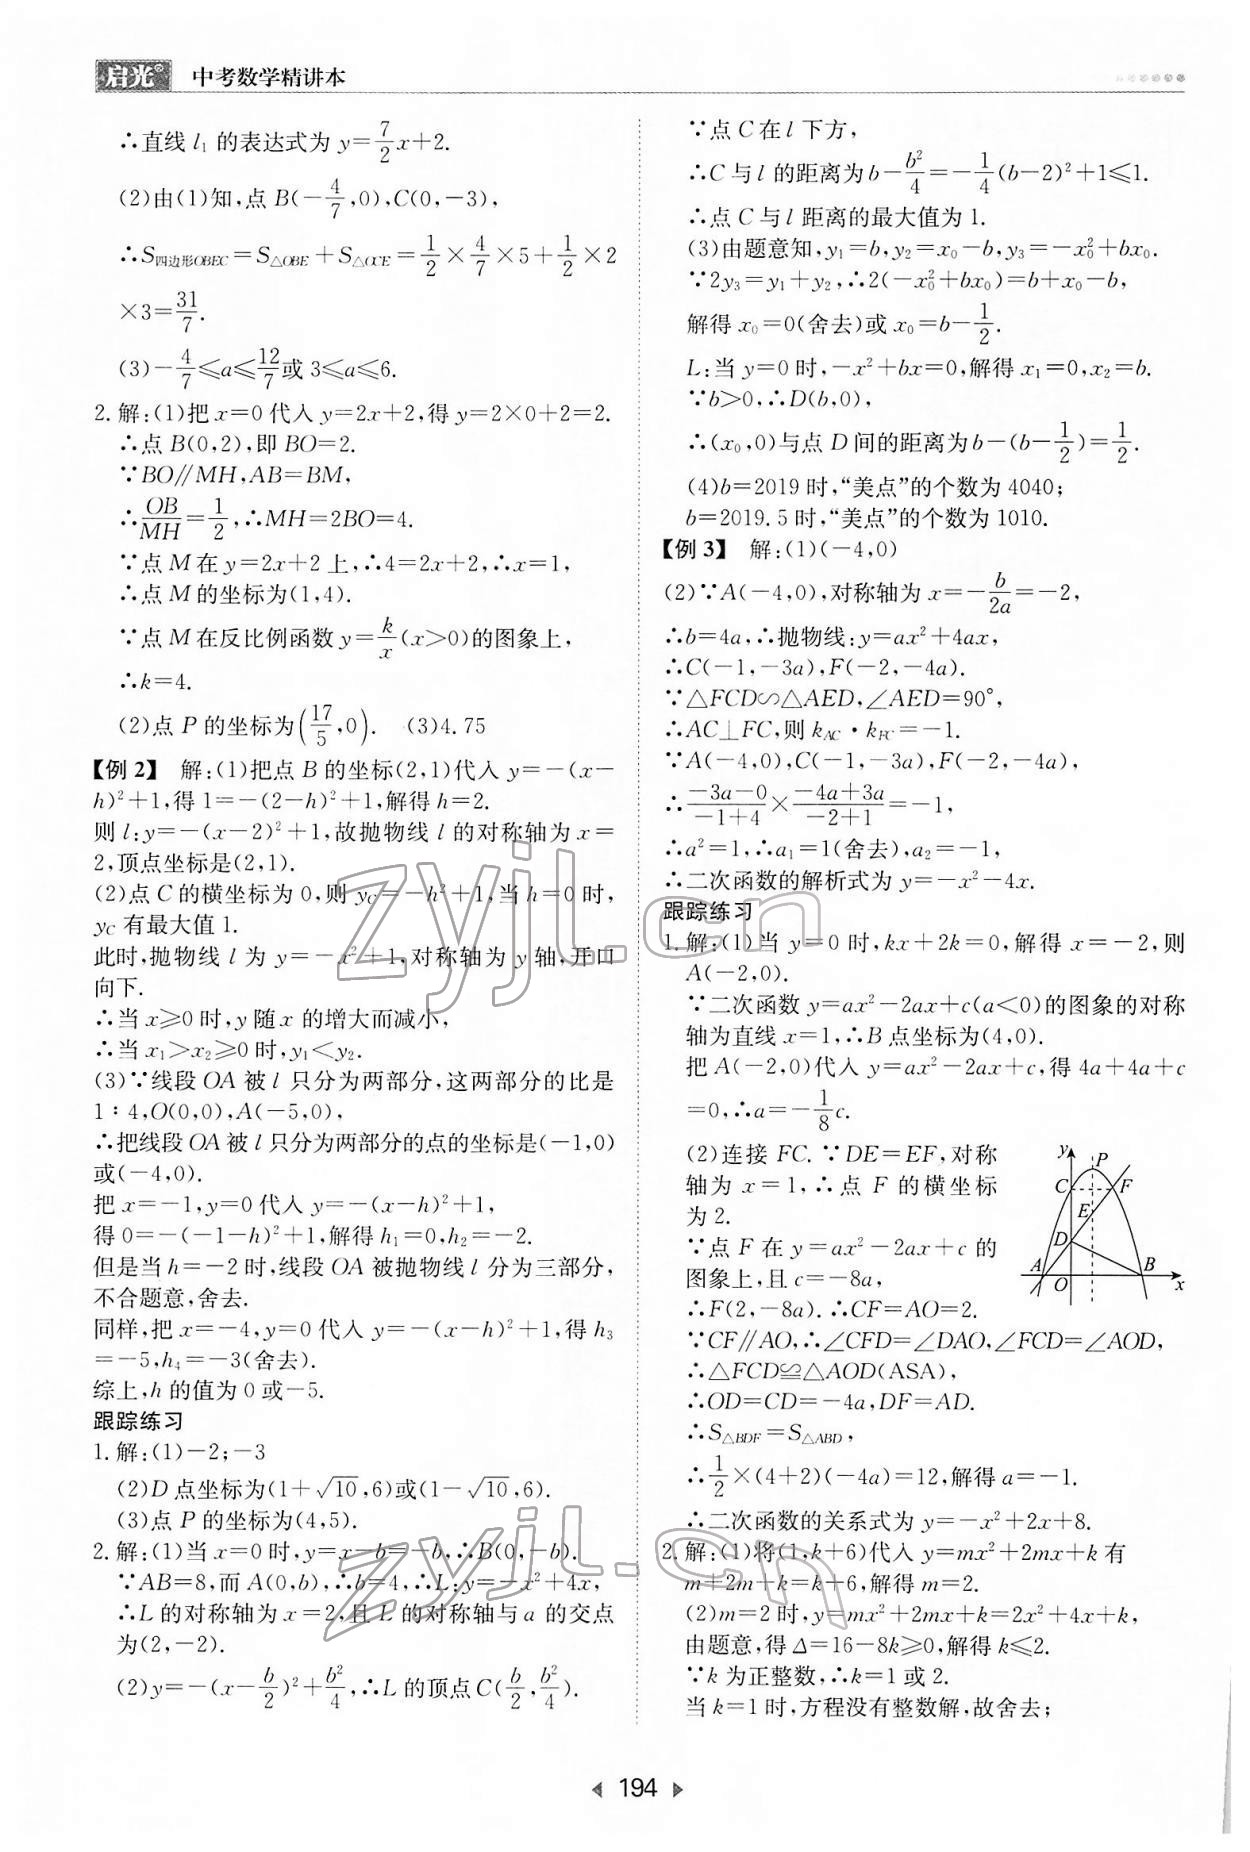 启光 中考数学精讲本
∴直线 l₁ 的表达式为 y=7/2x+2.
(2)由(1)知,点 B(-4/7,0),C(0,-3),
∴S四边形OBEC=S△OBE+S△OCE=1/2×4/7×5+1/2×2
×3=31/7.
(3)-4/7≤a≤12/7或 3≤a≤6.
2. 解:(1)把 x=0 代入 y=2x+2,得 y=2×0+2=2.
∴点 B(0,2),即 BO=2.
∵BO∥MH,AB=BM,
∴OB/MH=1/2,∴MH=2BO=4.
∵点 M 在 y=2x+2 上,∴4=2x+2,∴x=1,
∴点 M 的坐标为(1,4).
∵点 M 在反比例函数 y=k/x(x>0)的图象上,
∴k=4.
(2)点 P 的坐标为(17/5,0). (3)4.75
【例 2】 解:(1)把点 B 的坐标(2,1)代入 y=-(x-
h)²+1,得 1=-(2-h)²+1,解得 h=2.
则 l:y=-(x-2)²+1,故抛物线 l 的对称轴为 x=
2,顶点坐标是(2,1).
(2)点 C 的横坐标为 0,则 yC=-h²+1,当 h=0 时,
yC 有最大值 1.
此时,抛物线 l 为 y=-x²+1,对称轴为 y 轴,开口
向下.
∴当 x≥0 时,y 随 x 的增大而减小,
∴当 x₁>x₂≥0 时,y₁<y₂.
(3)∵线段 OA 被 l 只分为两部分,这两部分的比是
1∶4,O(0,0),A(-5,0),
∴把线段 OA 被 l 只分为两部分的点的坐标是(-1,0)
或(-4,0).
把 x=-1,y=0 代入 y=-(x-h)²+1,
得 0=-(-1-h)²+1,解得 h₁=0,h₂=-2.
但是当 h=-2 时,线段 OA 被抛物线 l 分为三部分,
不合题意,舍去.
同样,把 x=-4,y=0 代入 y=-(x-h)²+1,得 h₃
=-5,h₄=-3(舍去).
综上,h 的值为 0 或-5.
跟踪练习
1. 解:(1)-2;-3
(2)D 点坐标为(1+√10,6)或(1-√10,6).
(3)点 P 的坐标为(4,5).
2. 解:(1)当 x=0 时,y=x-b=-b,∴B(0,-b).
∵AB=8,而 A(0,b),∴b=4,∴L:y=-x²+4x,
∴L 的对称轴为 x=2,且 L 的对称轴与 a 的交点
为(2,-2).
(2)y=-(x-b/2)²+b²/4,∴L 的顶点 C(b/2,b²/4).
∵点 C 在 l 下方,
∴C 与 l 的距离为 b-b²/4=-1/4(b-2)²+1≤1.
∴点 C 与 l 距离的最大值为 1.
(3)由题意知,y₁=b,y₂=x₀-b,y₃=-x₀²+bx₀.
∵2y₃=y₁+y₂,∴2(-x₀²+bx₀)=b+x₀-b,
解得 x₀=0(舍去)或 x₀=b-1/2.
L:当 y=0 时,-x²+bx=0,解得 x₁=0,x₂=b.
∵b>0,∴D(b,0),
∴(x₀,0)与点 D 间的距离为 b-(b-1/2)=1/2.
(4)b=2019 时,“美点”的个数为 4040;
b=2019.5 时,“美点”的个数为 1010.
【例 3】 解:(1)(-4,0)
(2)∵A(-4,0),对称轴为 x=-b/2a=-2,
∴b=4a,∴抛物线:y=ax²+4ax,
∴C(-1,-3a),F(-2,-4a).
∵△FCD∽△AED,∠AED=90°,
∴AC⊥FC,则 kAC·kFC=-1.
∵A(-4,0),C(-1,-3a),F(-2,-4a),
∴(-3a-0)/(-1+4)×(-4a+3a)/(-2+1)=-1,
∴a²=1,∴a₁=1(舍去),a₂=-1,
∴二次函数的解析式为 y=-x²-4x.
跟踪练习
1. 解:(1)当 y=0 时,kx+2k=0,解得 x=-2,则
A(-2,0).
∵二次函数 y=ax²-2ax+c(a<0)的图象的对称
轴为直线 x=1,∴B 点坐标为(4,0).
把 A(-2,0)代入 y=ax²-2ax+c,得 4a+4a+c
=0,∴a=-1/8c.
(2)连接 FC.∵DE=EF,对称
轴为 x=1,∴点 F 的横坐标
为 2.
∵点 F 在 y=ax²-2ax+c 的
图象上,且 c=-8a,
∴F(2,-8a).∴CF=AO=2.
y P C F E D A O B x
∵CF∥AO,∴∠CFD=∠DAO,∠FCD=∠AOD,
∴△FCD≌△AOD(ASA),
∴OD=CD=-4a,DF=AD.
∴S△BDF=S△ABD,
∴1/2×(4+2)(-4a)=12,解得 a=-1.
∴二次函数的关系式为 y=-x²+2x+8.
2. 解:(1)将(1,k+6)代入 y=mx²+2mx+k 有
m+2m+k=k+6,解得 m=2.
(2)m=2 时,y=mx²+2mx+k=2x²+4x+k,
由题意,得 Δ=16-8k≥0,解得 k≤2.
∵k 为正整数,∴k=1 或 2.
当 k=1 时,方程没有整数解,故舍去;
194
zyjl.cn
zyjl.cn